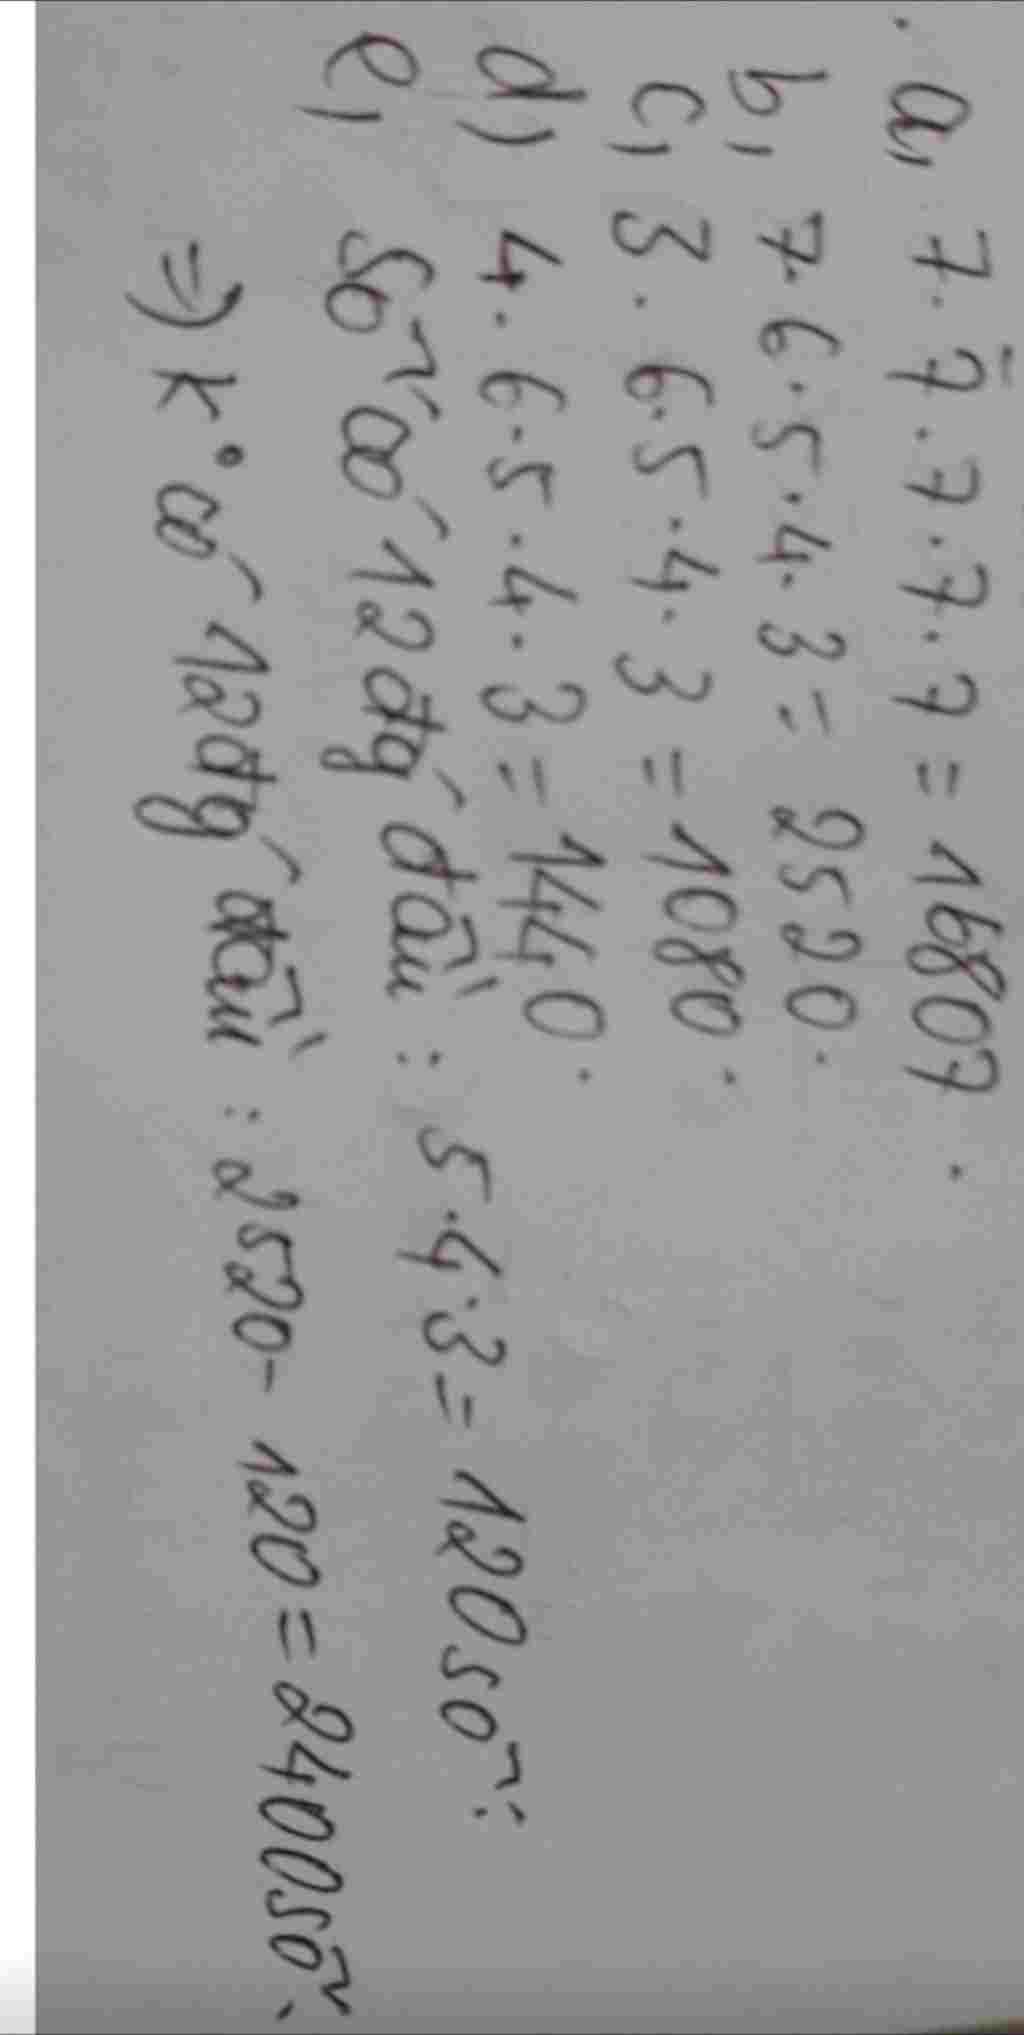 a, 7.7.7.7.7 = 16807.
b, 7.6.5.4.3 = 2520.
c, 3.6.5.4.3 = 1080.
d) 4.6.5.4.3 = 1440.
e, Số có 12 đg đầu : 5.4.3 = 120 số.
=> k° có 12 đg đầu : 2520 - 120 = 2400 số.